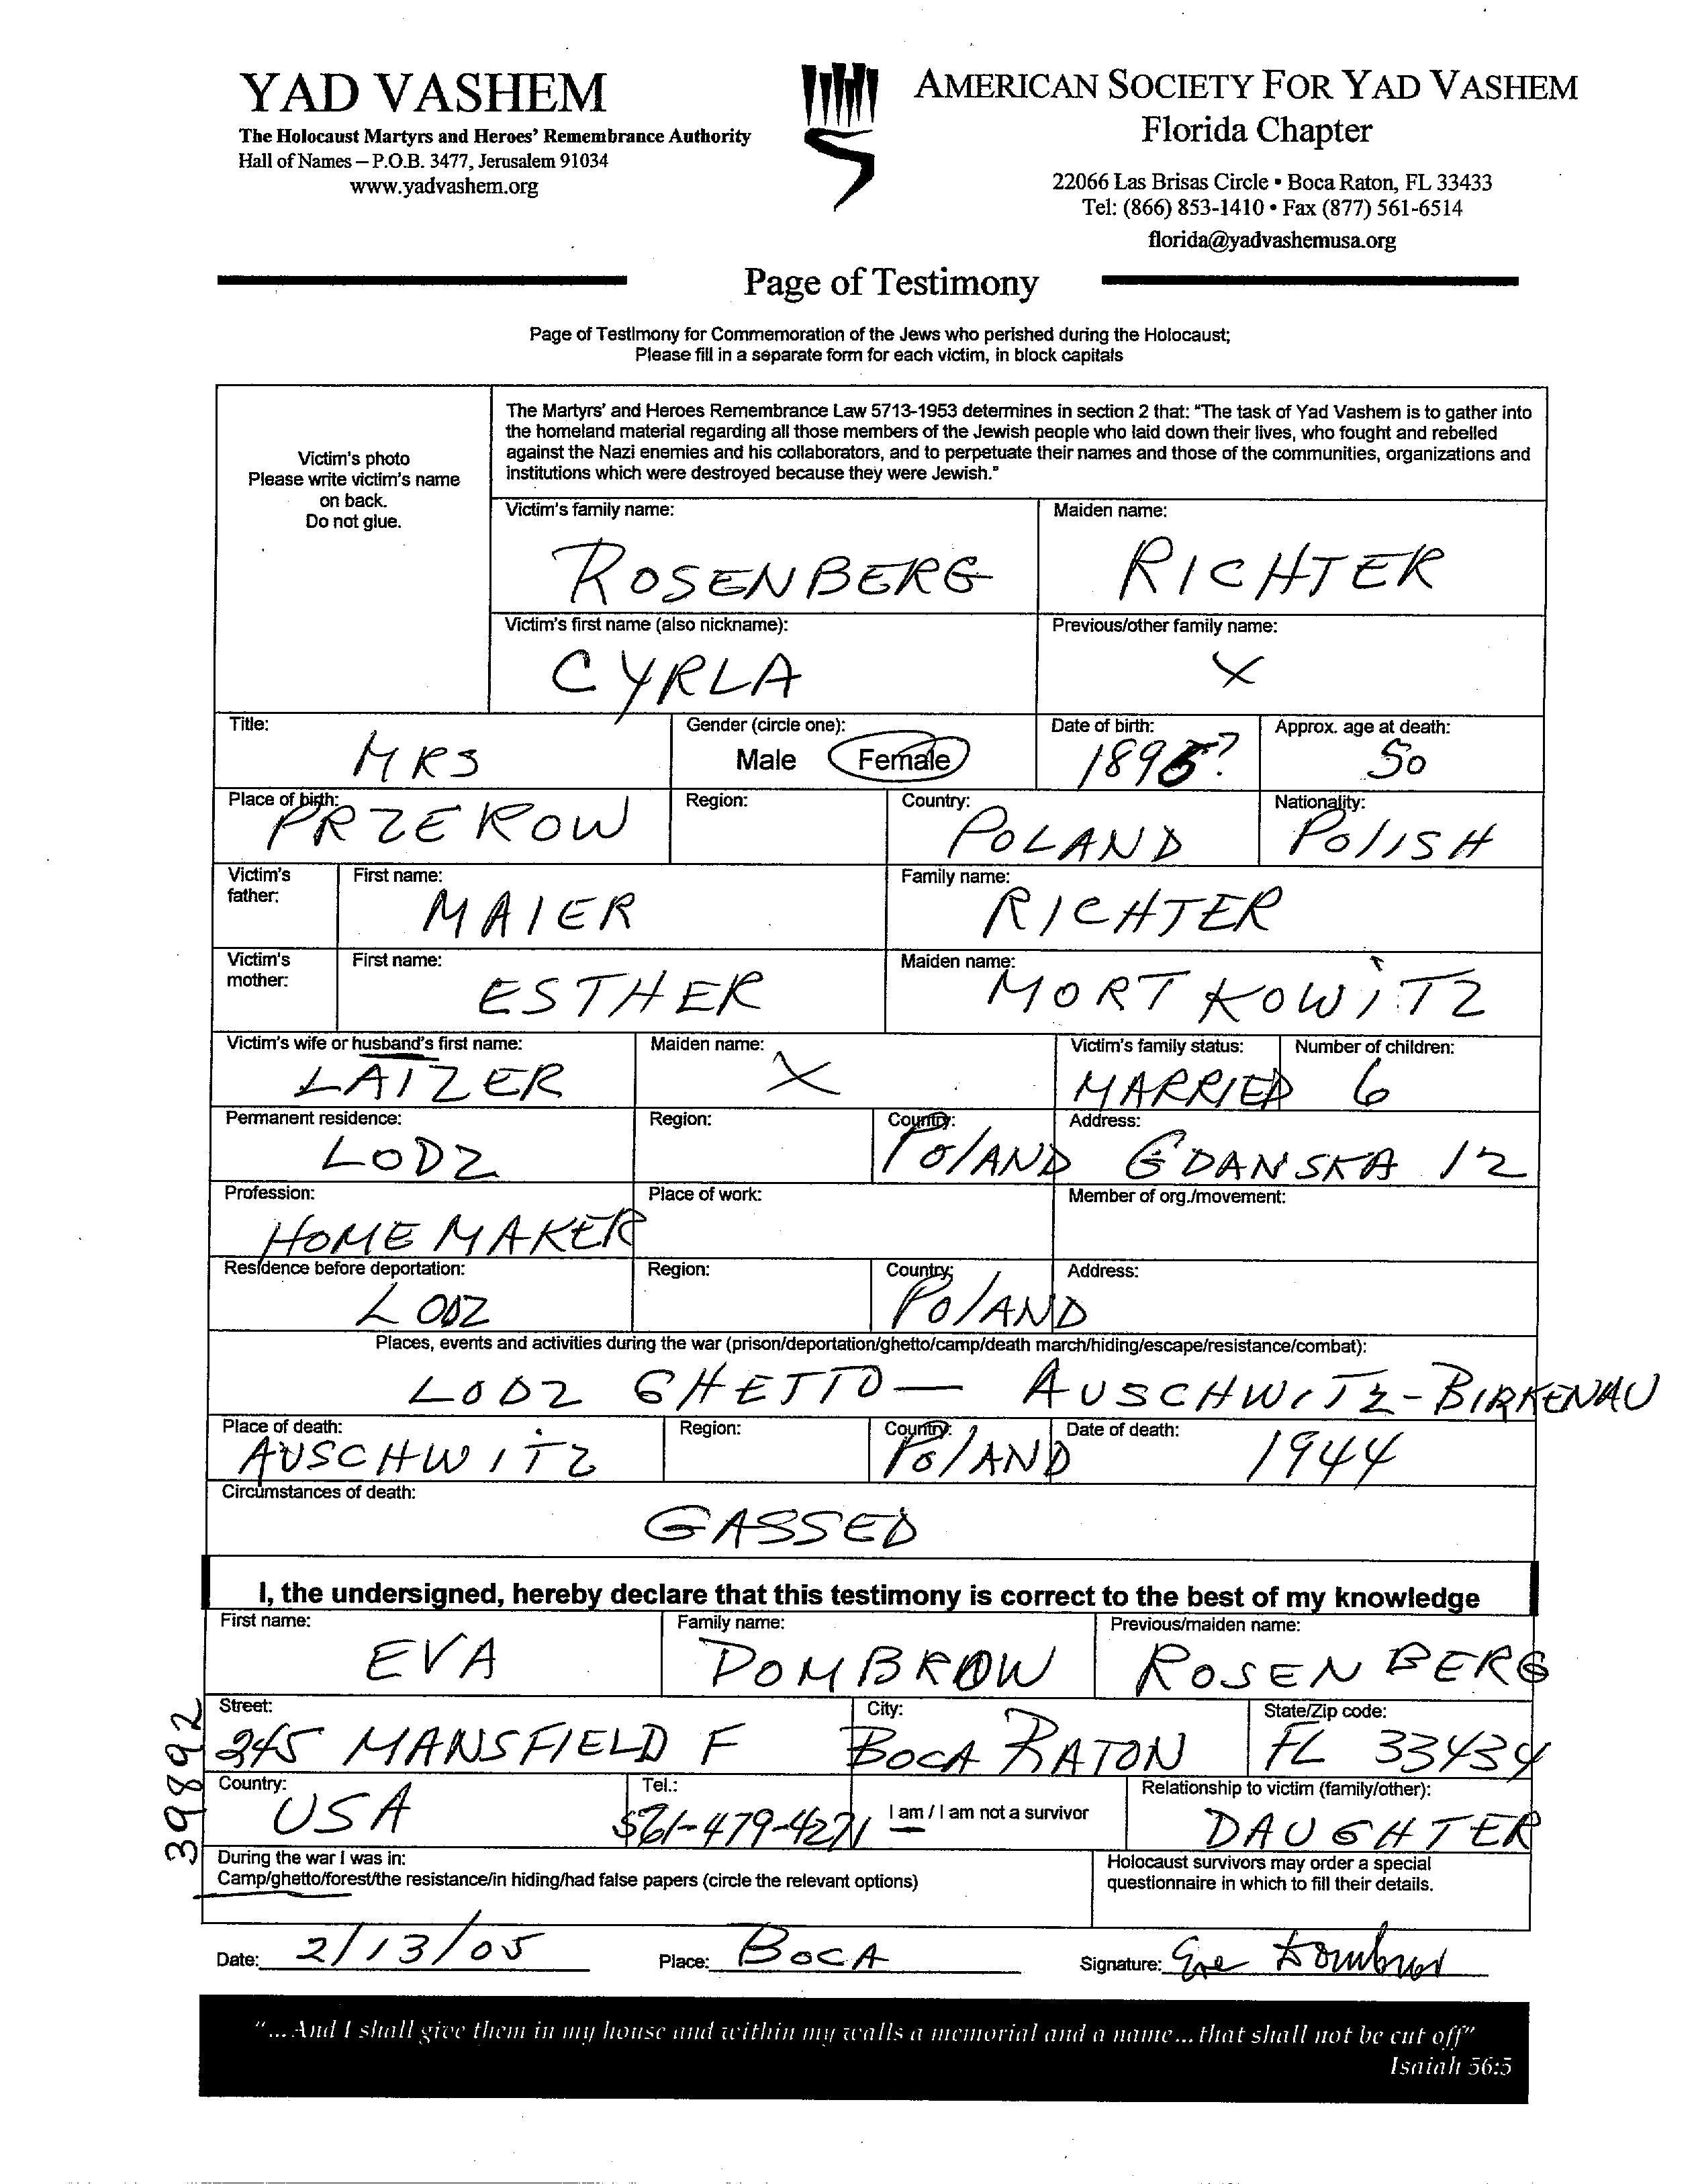 YAD VASHEM
The Holocaust Martyrs and Heroes' Remembrance Authority
Hall of Names – P.O.B. 3477, Jerusalem 91034
www.yadvashem.org
AMERICAN SOCIETY FOR YAD VASHEM
Florida Chapter
22066 Las Brisas Circle • Boca Raton, FL 33433
Tel: (866) 853-1410 • Fax (877) 561-6514
florida@yadvashemusa.org
Page of Testimony
Page of Testimony for Commemoration of the Jews who perished during the Holocaust;
Please fill in a separate form for each victim, in block capitals
Victim's photo
Please write victim's name
on back.
Do not glue.
The Martyrs' and Heroes Remembrance Law 5713-1953 determines in section 2 that: "The task of Yad Vashem is to gather into
the homeland material regarding all those members of the Jewish people who laid down their lives, who fought and rebelled
against the Nazi enemies and his collaborators, and to perpetuate their names and those of the communities, organizations and
institutions which were destroyed because they were Jewish."
Victim's family name: Maiden name:
ROSENBERG RICHTER
Victim's first name (also nickname): Previous/other family name:
CYRLA X
Title: Gender (circle one): Date of birth: Approx. age at death:
MRS Male Female 1895? 50
Place of birth: Region: Country: Nationality:
PRZEROW POLAND POlISH
Victim's father: First name: Family name:
MAIER RICHTER
Victim's mother: First name: Maiden name:
ESTHER MORTKOWITZ
Victim's wife or husband's first name: Maiden name: Victim's family status: Number of children:
LAIZER X MARRIED 6
Permanent residence: Region: Country: Address:
LODZ POlAND GDANSKA 12
Profession: Place of work: Member of org./movement:
HOME MAKER
Residence before deportation: Region: Country: Address:
LODZ POlAND
Places, events and activities during the war (prison/deportation/ghetto/camp/death march/hiding/escape/resistance/combat):
LODZ GHETTO — AUSCHWITZ-BIRKENAU
Place of death: Region: Country: Date of death:
AUSCHWITZ POlAND 1944
Circumstances of death:
GASSED
I, the undersigned, hereby declare that this testimony is correct to the best of my knowledge
First name: Family name: Previous/maiden name:
EVA DOMBROW ROSENBERG
Street: City: State/Zip code:
345 MANSFIELD F BOCA RATON FL 33434
Country: Tel.: Relationship to victim (family/other):
USA 561-479-4271 I am / I am not a survivor DAUGHTER
During the war I was in:
Camp/ghetto/forest/the resistance/in hiding/had false papers (circle the relevant options)
Holocaust survivors may order a special
questionnaire in which to fill their details.
39892
Date: 2/13/05 Place: BOCA Signature: Eve Dombrow
"... And I shall give them in my house and within my walls a memorial and a name... that shall not be cut off"
Isaiah 56:5